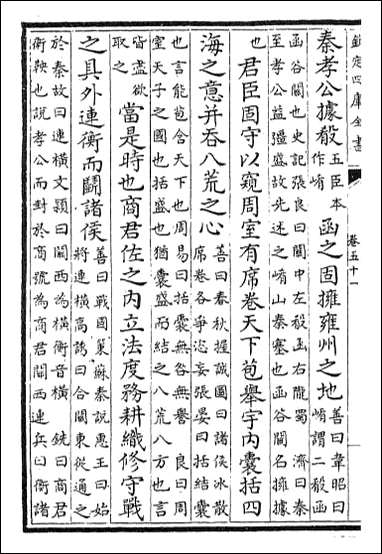 欽定四庫全書
卷五十一
秦孝公據殽
五臣本
作崤
函之固擁雍州之地
善曰韋昭曰
崤謂二殽函
函谷關也史記張良曰關中左殽函右隴蜀 濟曰秦
至孝公益彊盛故先述之崤山秦塞也函谷關名擁據
也
君臣固守以窺周室有席卷天下苞舉宇内囊括四
海之意并吞八荒之心
善曰春秋握誠圖曰諸侯冰散
席卷各爭恣妄張晏曰括結囊
也言能苞含天下也周易曰括囊無咎無譽 良曰周
室天子之國也括盛也猶囊盛而結之八荒八方也言
皆盡欲
取之
當是時也商君佐之内立法度務耕織修守戰
之具外連衡而鬭諸侯
善曰戰國策蘇秦說惠王曰始
將連橫高誘曰合關東從通之
於秦故曰連橫文潁曰關西為橫衡音橫 銑曰商君
衛鞅也說孝公而封於商號為商君關西連兵曰衡諸